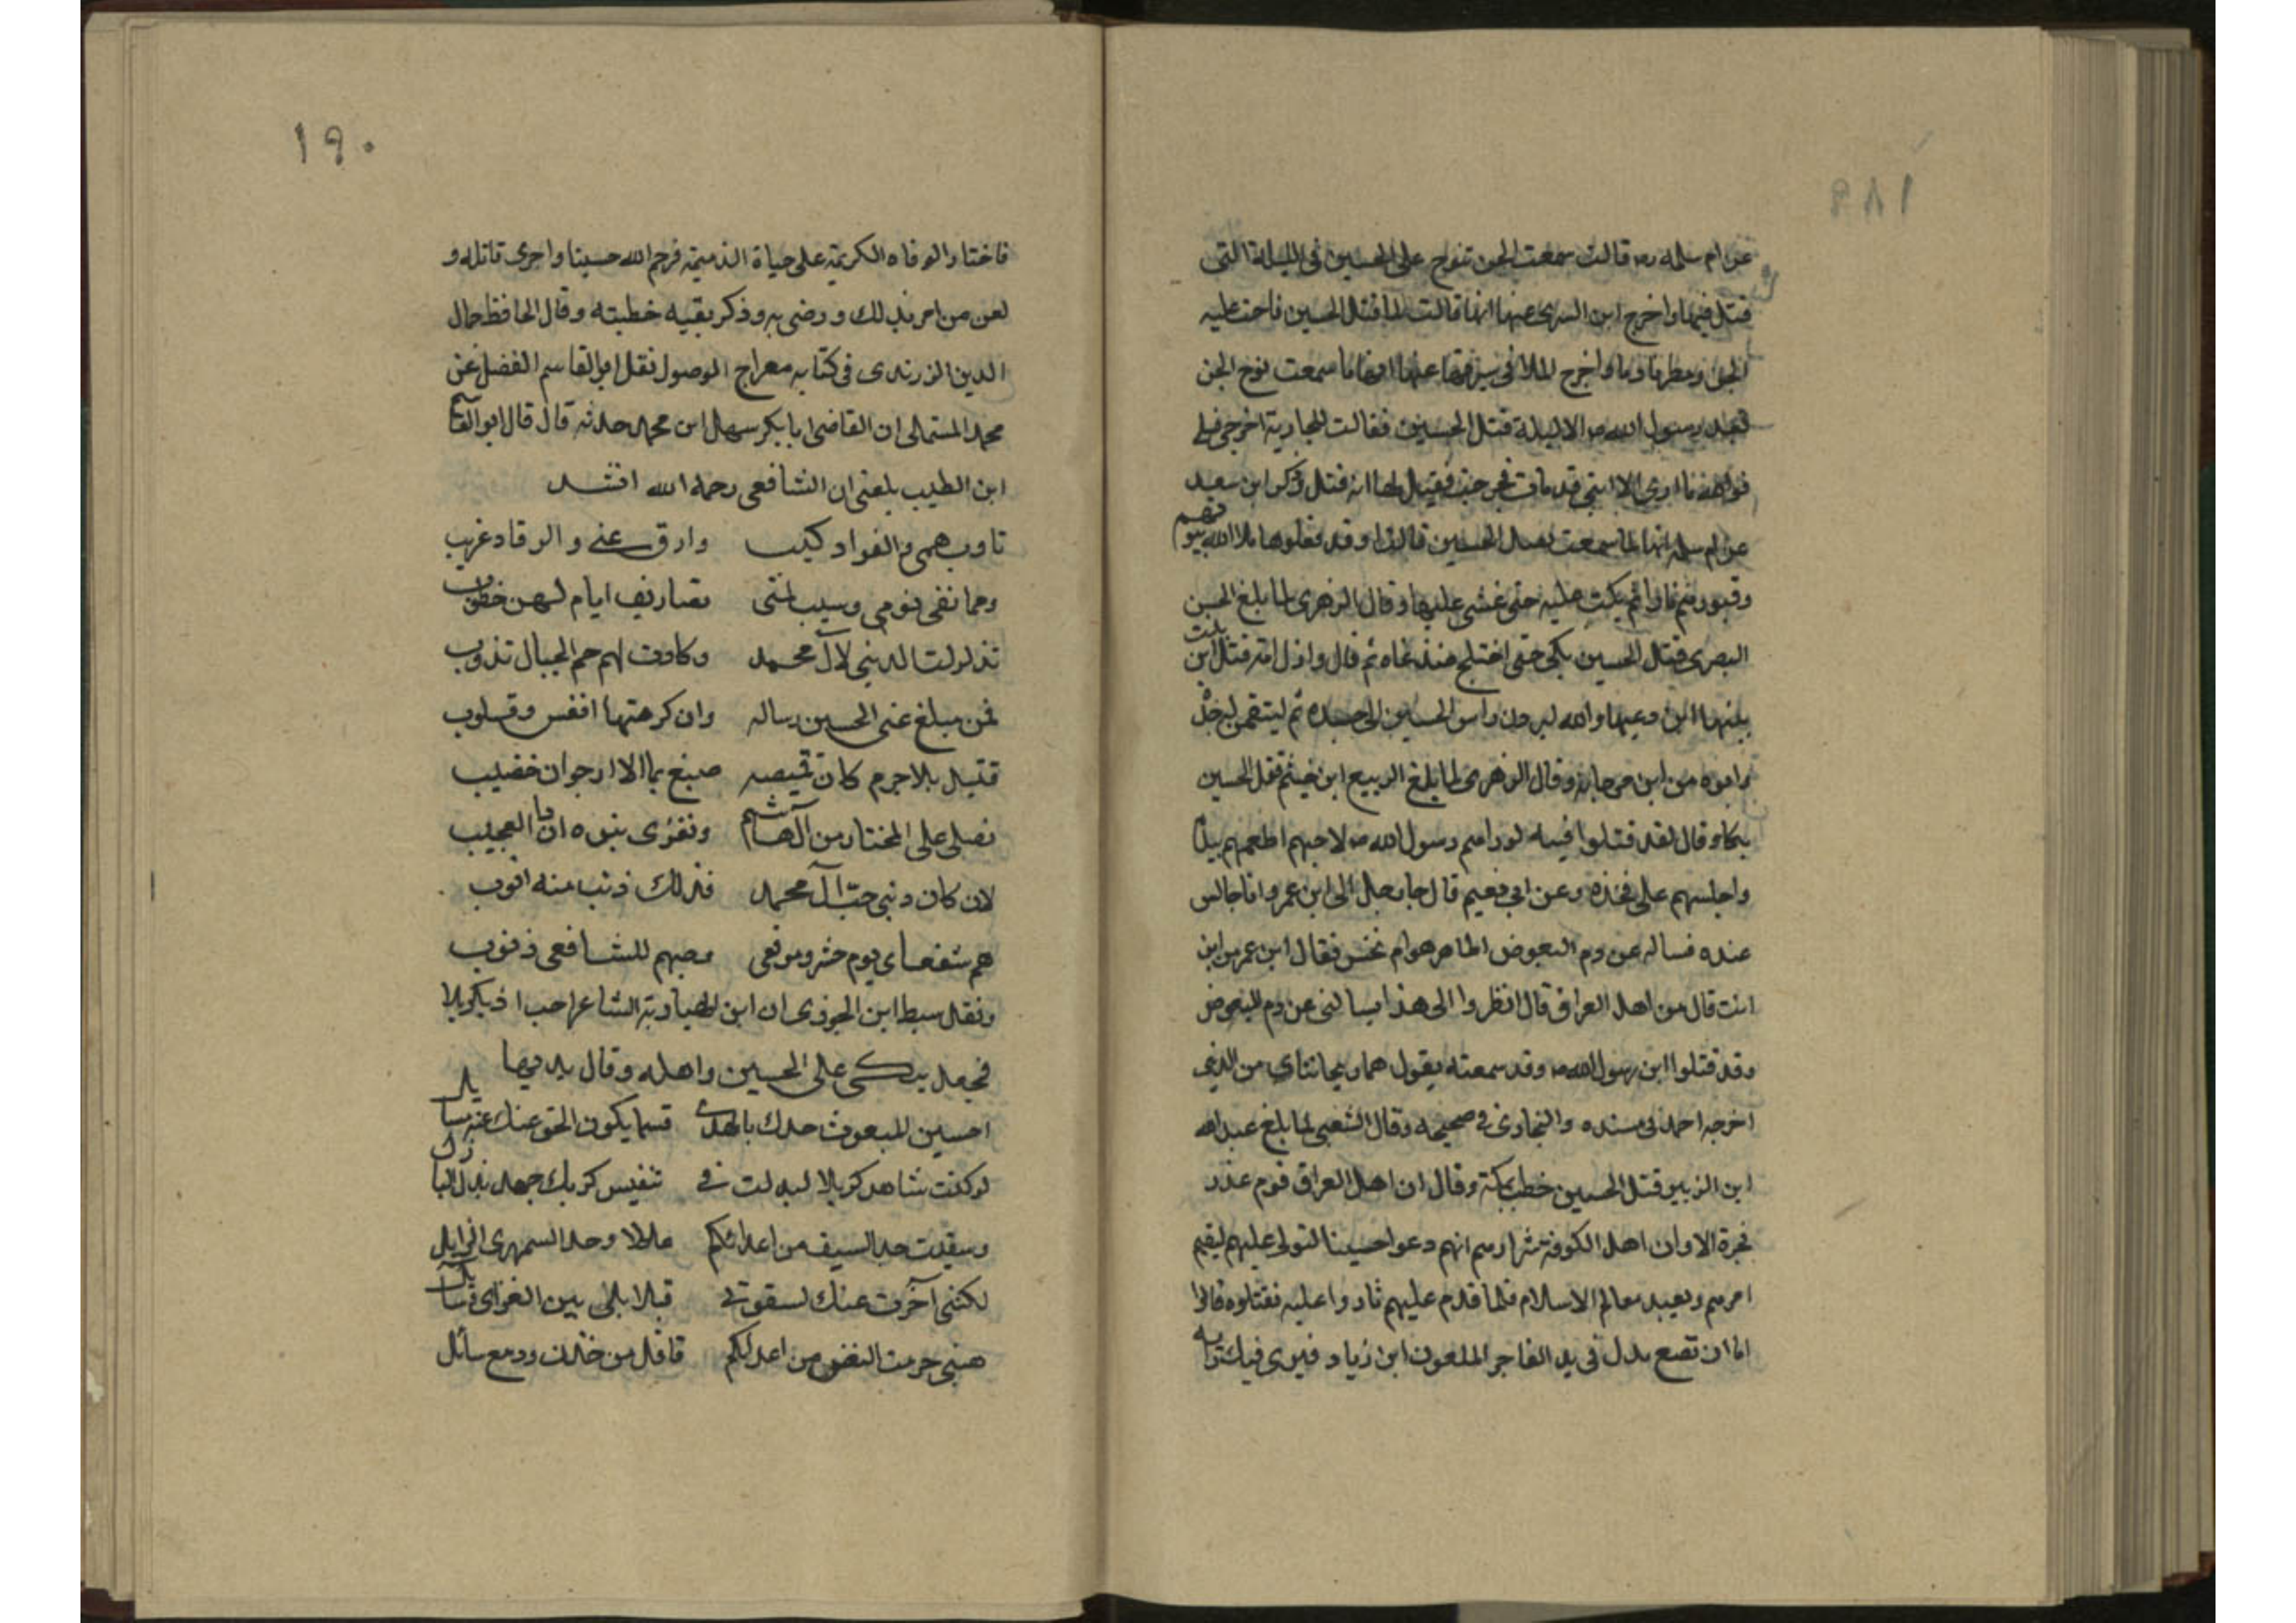 ١٨٩
عن ام سلمه رض قالت سمعت الجن تنوح على الحسين فى الليلة التى
قتل فيها واخرج ابن السرى عنها انها قالت لما قتل الحسين ناحت عليه
الجن ومطرنا دما واخرج الملا فى سيرته عنها انها ما سمعت نوح الجن
بعد رسول الله ص الا ليلة قتل الحسين فقالت للجارية اخرجى فسلى
فوالله ما ارى الا ابنى قد مات فخرجت فقيل لها انه قتل وذكر ابن سعد
عن ام سلمه انها لما سمعت بقتل الحسين قالت اوقد فعلوها ملا الله بيوتهم
وقبورهم نارا ثم بكت عليه حتى غشى عليها وقال الزهرى لما بلغ الحسن
البصرى قتل الحسين بكى حتى اختلج صدغاه ثم قال واذل امة قتل ابن بنت
نبيها ابن دعيها والله ليردن راس الحسين الى جسده ثم لينتقمن له جد
وابوه من ابن مرجانه وقال الزهرى لما بلغ الربيع ابن خيثم قتل الحسين
بكا وقال لقد قتلوا فتيه لو راهم رسول الله ص لاحبهم اطعمهم بيده
واجلسهم على فخذه وعن ابى نعيم قال جا رجل الى ابن عمر وانا جالس
عنده فساله عن دم البعوض اطاهر هو ام نجس فقال ابن عمر من اين
انت قال من اهل العراق قال انظروا الى هذا يسالنى عن دم البعوض
وقد قتلوا ابن رسول الله ص وقد سمعته يقول هما ريحانتاى من الدنيى
اخرجه احمد فى مسنده والبخارى فى صحيحه وقال الشعبى لما بلغ عبد الله
ابن الزبير قتل الحسين خطب بمكة وقال ان اهل العراق قوم غدر
فجرة الا وان اهل الكوفة شرارهم انهم دعوا حسينا لتولى عليهم ليقيم
امرهم ويعيد معالم الاسلام فلما قدم عليهم ثاروا عليه فقتلوه قالوا
اما ان تضع يدك فى يد الفاجر الملعون ابن زياد فيرى فيك رايه
١٩٠
فاختار الوفاه الكريمة على حياة الذميمة فرحم الله حسينا واخزى قاتله و
لعن من امر بذلك ورضى به وذكر بقيه خطبته وقال الحافظ جمال
الدين الزرندى فى كتابه معراج الوصول نقل ابو القاسم الفضل عن
محمد المستملى ان القاضى ابا بكر سهل ابن محمد حدثه قال قال ابو القاسم
ابن الطيب بلغنى ان الشافعى رحمه الله انشد
تاوب همى والفواد كئيب وارق عينى والرقاد غريب
ومما نفى نومى وشيب لمتى تصاريف ايام لهن خطوب
تزلزلت الدنيى لآل محمد وكادت لهم صم الجبال تذوب
فمن مبلغ عنى الحسين رساله وان كرهتها انفس وقلوب
قتيل بلا جرم كان قميصه صبغ بما الارجوان خضيب
نصلى على المختار من آل هاشم ونغزى بنوه ان ذا العجيب
لان كان ذنبى حب آل محمد فذلك ذنب منه اتوب
هم شفعاى يوم حشرو موقفى وحبهم للشافعى ذنوب
ونقل سبط ابن الجوزى ان ابن الهبارية الشاعر اجتاز بكربلا
فجعل يبكى على الحسين واهله وقال بديها
احسين المبعوث جدك بالهدى قسما يكون الحق عنك مسايل
لو كنت شاهد كربلا لبذلت فى تنفيس كربك جهد بذل الباذل
وسقيت حد السيف من اعدائكم عللا وحد السمهرى الذابل
لكننى آخرت عنك لشقوتى فبلابلى بين الغرى وبابل
هبنى حرمت النصر من اعدائكم فاقل من حزن ودمع سائل